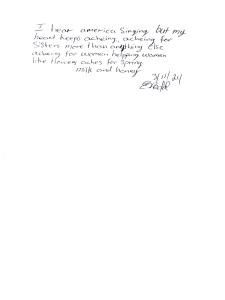 I hear america singing but my
heart keeps acheing, acheing for
Sisters more than anything else
acheing for women helping women
like flowers aches for spring
milk and honey
3/11/24